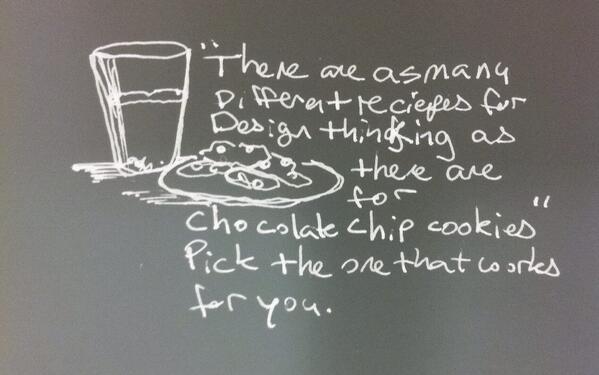 "There are as many
Different reciepes for
Design thinking as
there are
for
chocolate chip cookies"
Pick the one that works
for you.